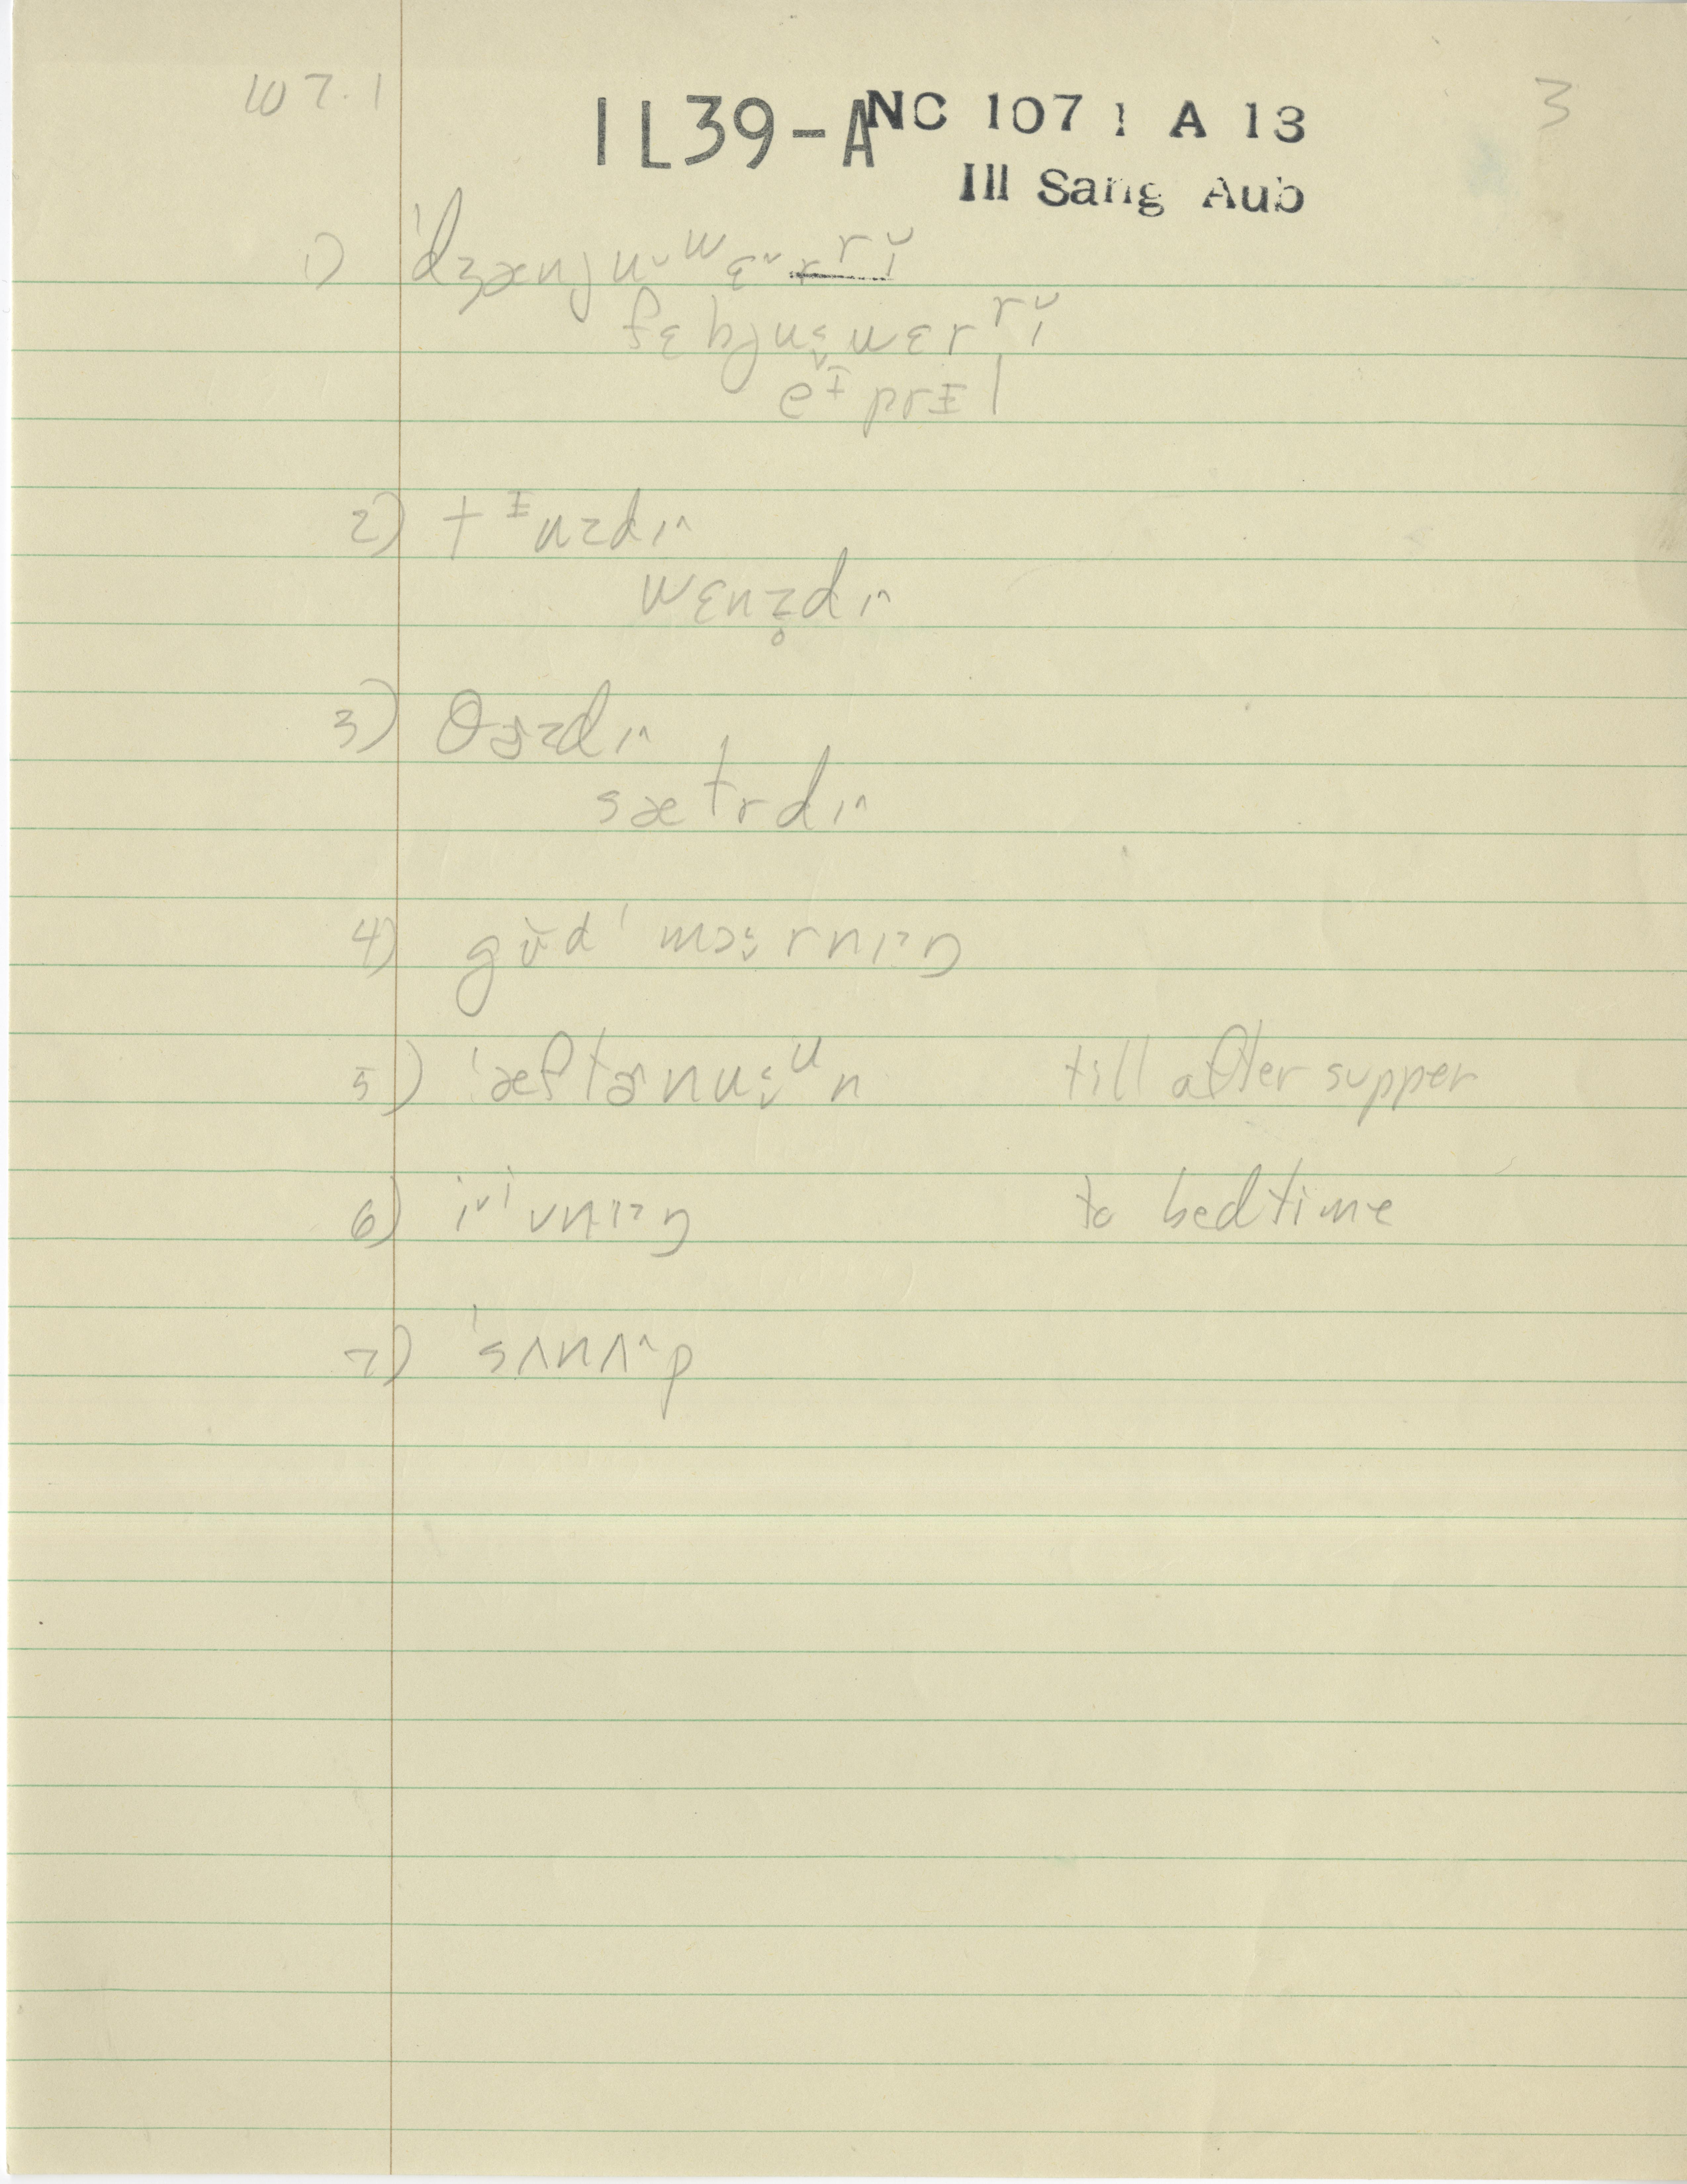 107.1
IL39-A NC 107 1 A 13 3
Ill Sang Aub
1) ˈdʒænjuˇʷɛˇrʳɪ̆
fɛbjuˑ̬wɛrʳɪ̆
eᶧprɪ̵l
2) tᶧuzdɪ^
wɛnz̥dɪ^
3) θɝzdɪ^
sætrdɪ^
4) gʊ̆d ˈmɔˑ̬rnɪˑŋ
5) ˈæftɚnuˑ̬ᵘn till after supper
6) iˇⁱvnɪˑŋ to bedtime
7) ˈsʌnʌ^p